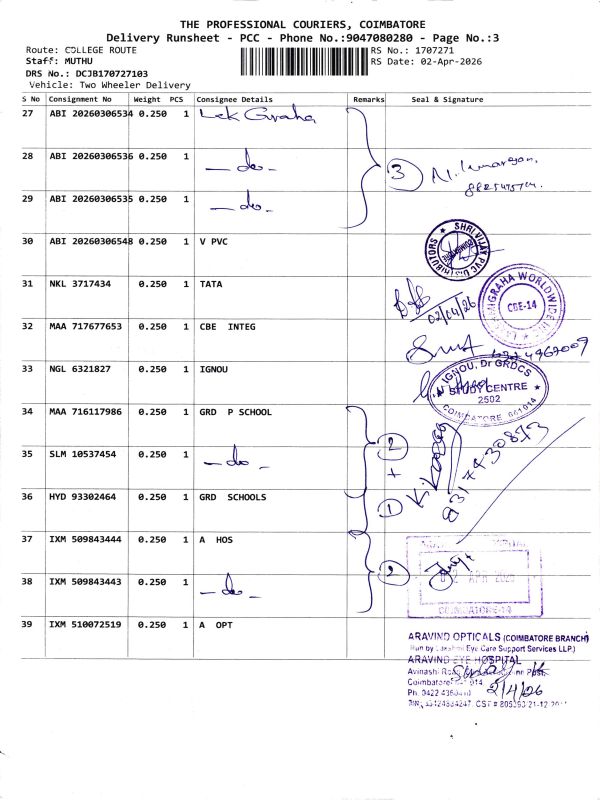 THE PROFESSIONAL COURIERS, COIMBATORE
Delivery Runsheet - PCC - Phone No.:9047080280 - Page No.:3
Route: COLLEGE ROUTE
RS No.: 1707271
Staff: MUTHU
RS Date: 02-Apr-2026
DRS No.: DCJB170727103
Vehicle: Two Wheeler Delivery
S No Consignment No Weight PCS Consignee Details Remarks Seal & Signature
27 ABI 20260306534 0.250 1
28 ABI 20260306536 0.250 1 - do -
3
29 ABI 20260306535 0.250 1 - do -
30 ABI 20260306548 0.250 1 V PVC
SHRI VIJAY PVC DISTRIBUTORS
31 NKL 3717434 0.250 1 TATA
02/04/26
CBE-14
32 MAA 717677653 0.250 1 CBE INTEG
33 NGL 6321827 0.250 1 IGNOU
IGNOU, Dr GRDCS
STUDY CENTRE
2502
COIMBATORE 641014
34 MAA 716117986 0.250 1 GRD P SCHOOL
2
35 SLM 10537454 0.250 1 - do -
+
36 HYD 93302464 0.250 1 GRD SCHOOLS
1
37 IXM 509843444 0.250 1 A HOS
2
38 IXM 509843443 0.250 1 - do -
COIMBATORE-14
39 IXM 510072519 0.250 1 A OPT
ARAVIND OPTICALS (COIMBATORE BRANCH)
Run by Lakshmi Eye Care Support Services LLP.)
ARAVIND EYE HOSPITAL
Avinashi Road
Coimbatore
2/4/26
Ph. 0422